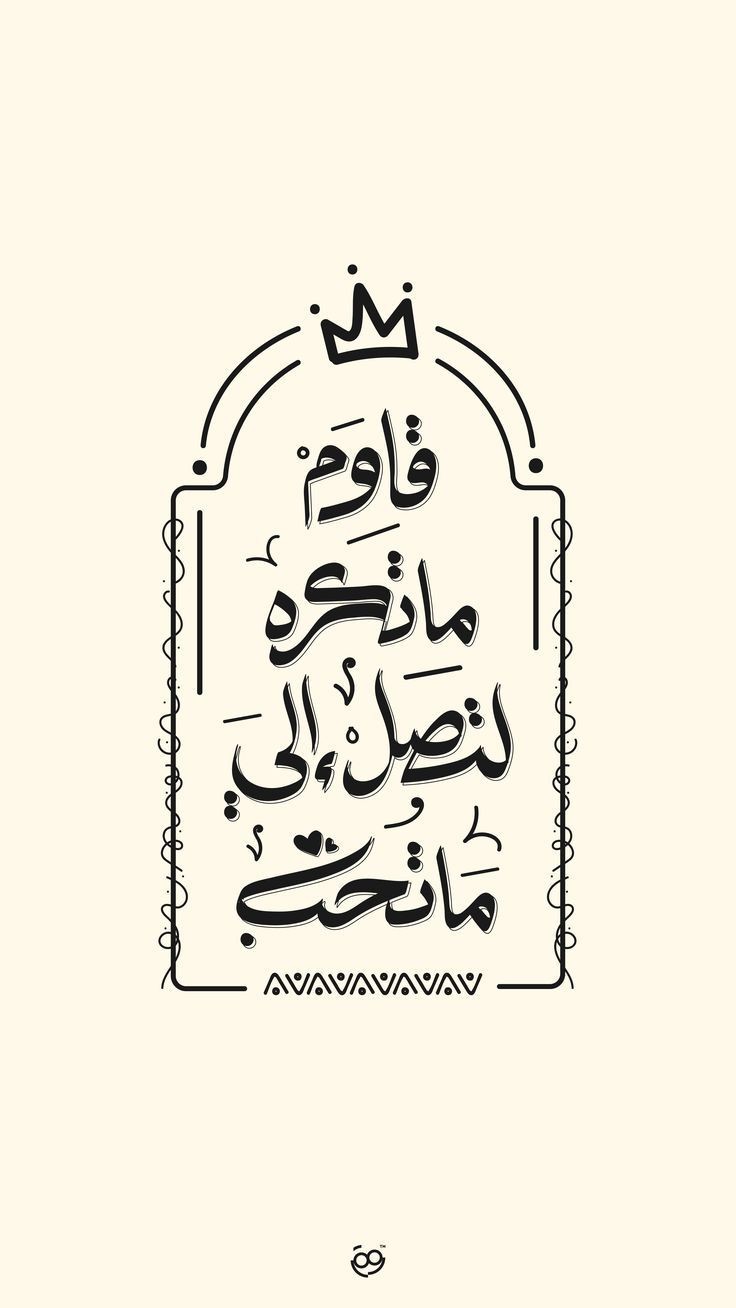 قاوَمْ
ما تكره
لتصَلْ إليَ
مَا تُحب
™